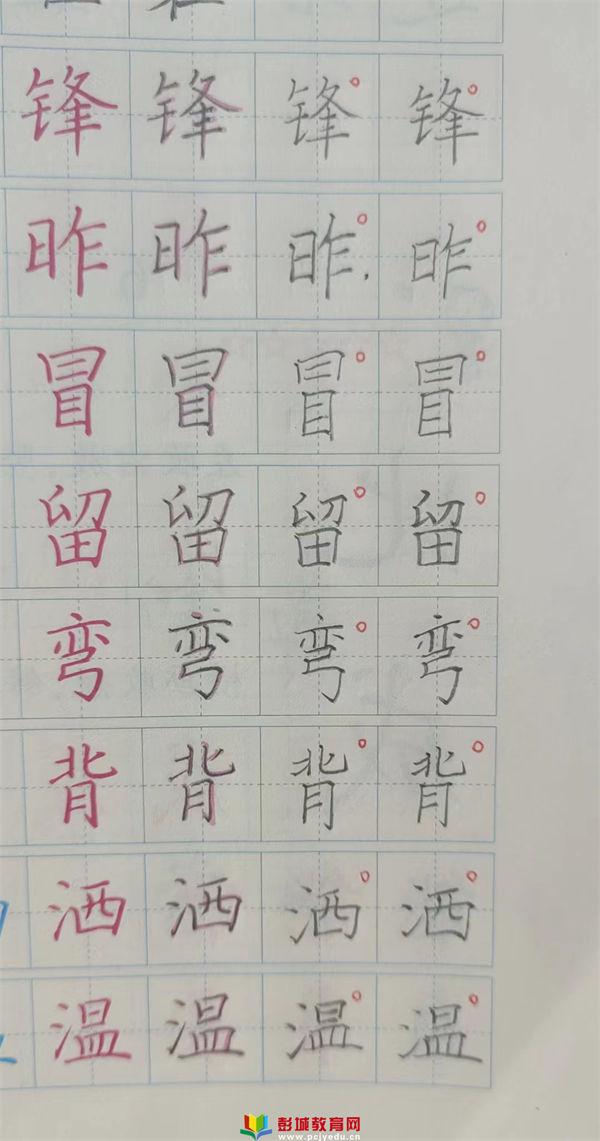 锋 锋 锋 锋
昨 昨 昨 昨
冒 冒 冒 冒
留 留 留 留
弯 弯 弯 弯
背 背 背 背
洒 洒 洒 洒
温 温 温 温
彭城教育网
www.pcjyedu.cn